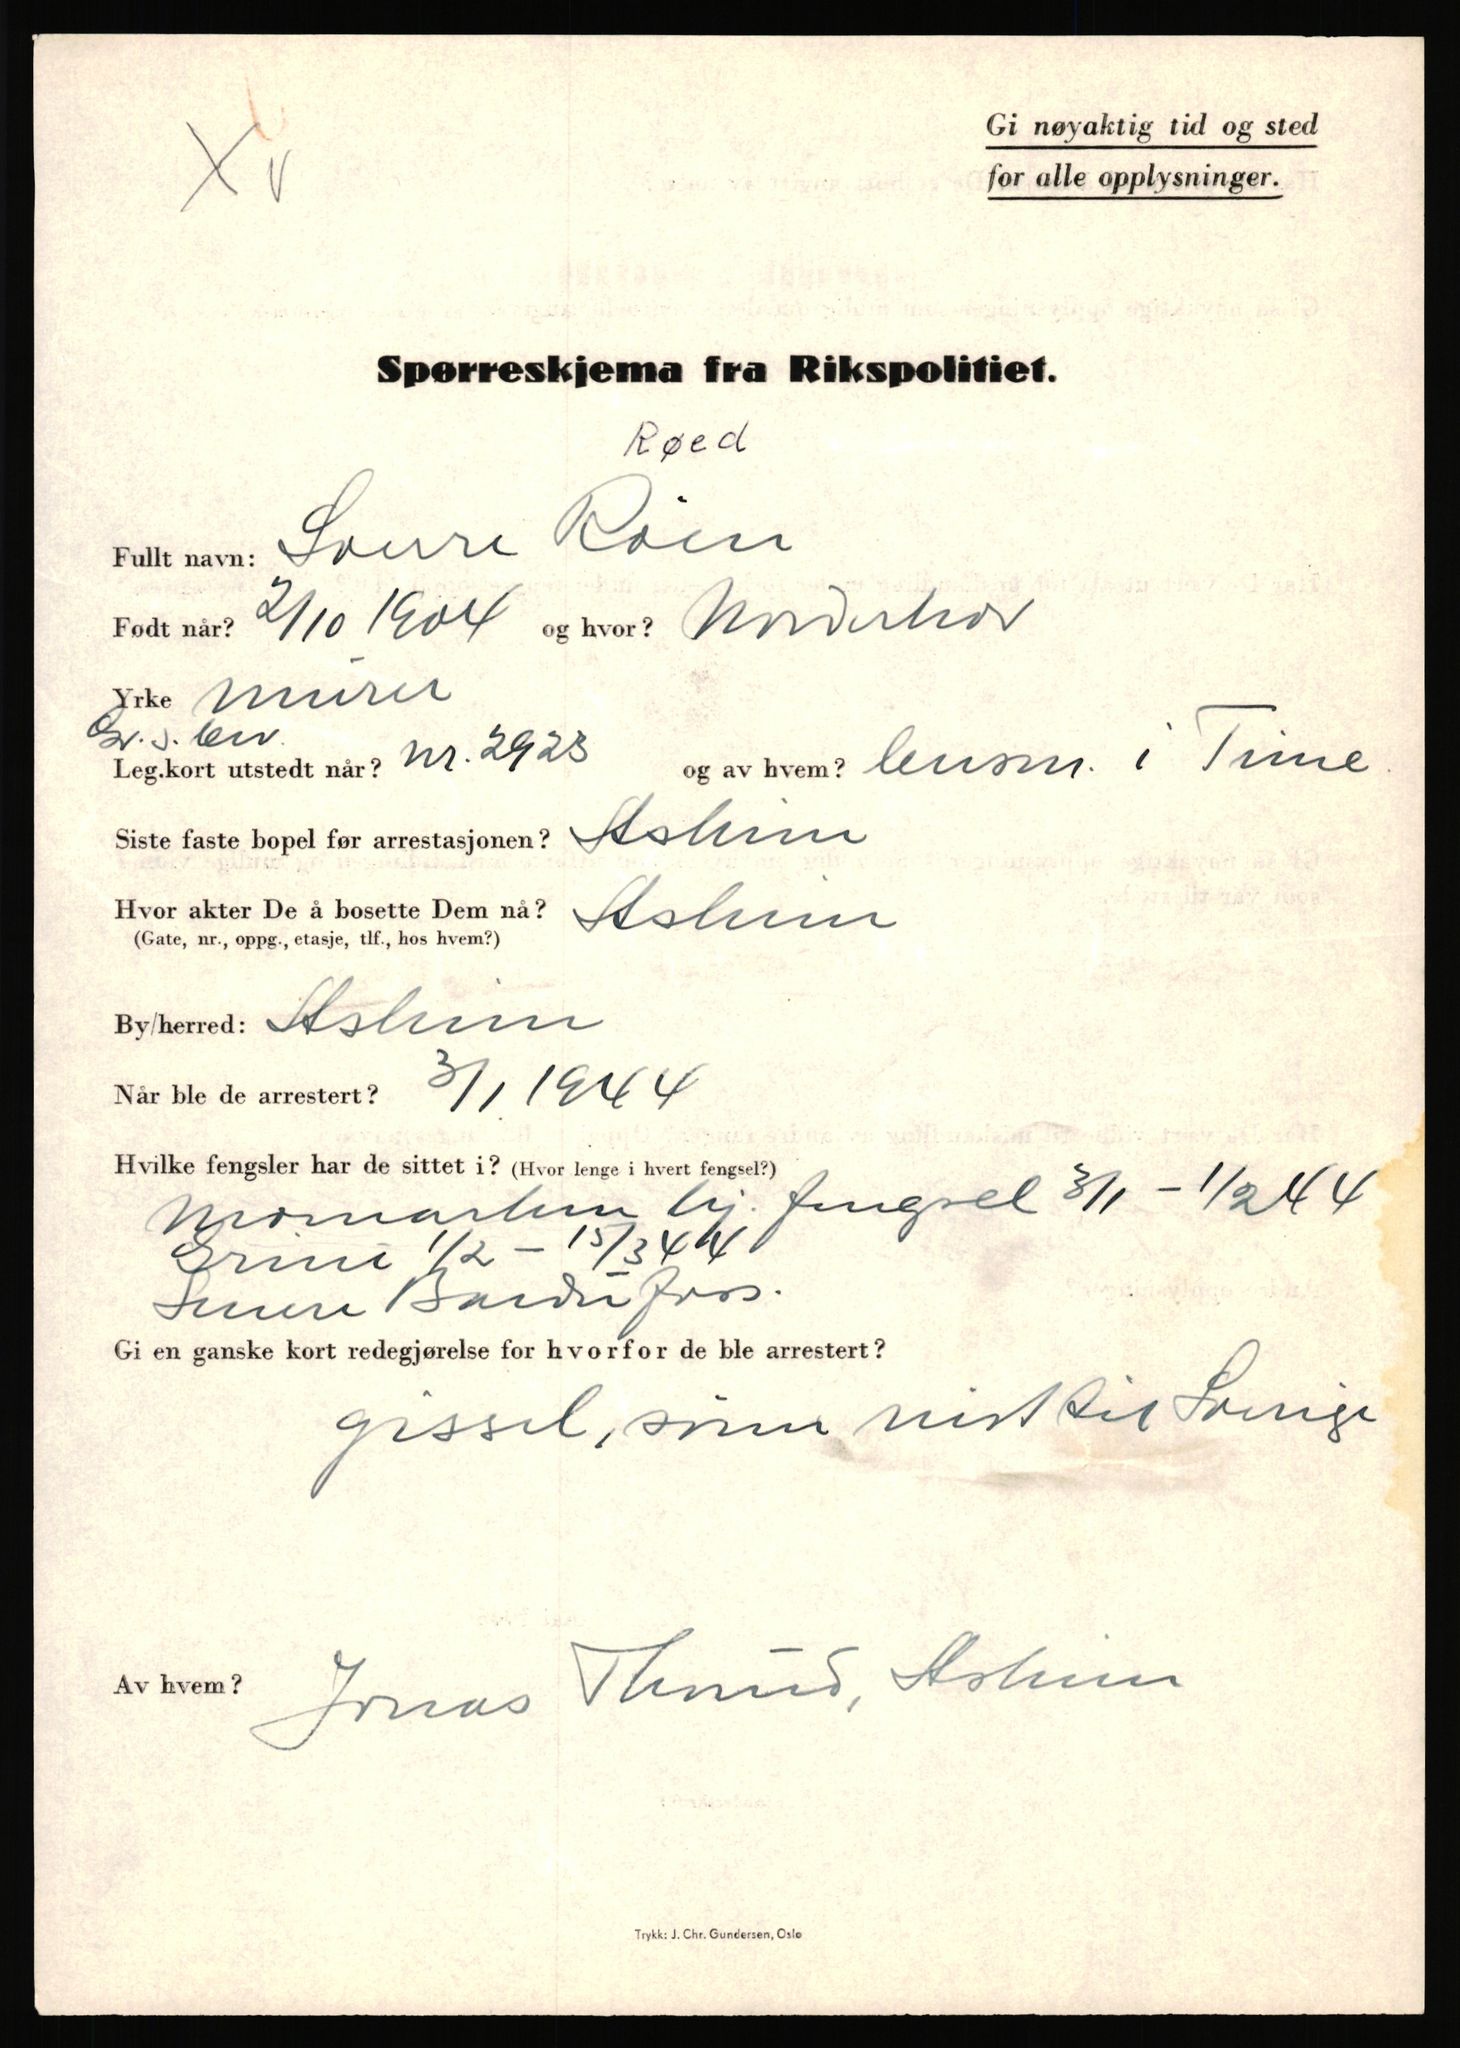 X v
Gi nøyaktig tid og sted
for alle opplysninger.
Spørreskjema fra Rikspolitiet.
Røed
Fullt navn: Sverre Röen
Født når? 2/10 1904 og hvor? Norderhov
Yrke murer
Gr. s. bev.
Leg.kort utstedt når? nr. 2923 og av hvem? lensm. i Time
Siste faste bopel før arrestasjonen? Askim
Hvor akter De å bosette Dem nå? Askim
(Gate, nr., oppg., etasje, tlf., hos hvem?)
By/herred: Askim
Når ble de arrestert? 3/1 1944
Hvilke fengsler har de sittet i? (Hvor lenge i hvert fengsel?)
Momarken hj. fengsel 3/1 - 1/2 44
Grini 1/2 - 15/3 44
Senere Bardufoss.
Gi en ganske kort redegjørelse for hvorfor de ble arrestert?
gissel, sönn reist til Sverige
Av hvem? Jonas Askim
Trykk: J. Chr. Gundersen, Oslo